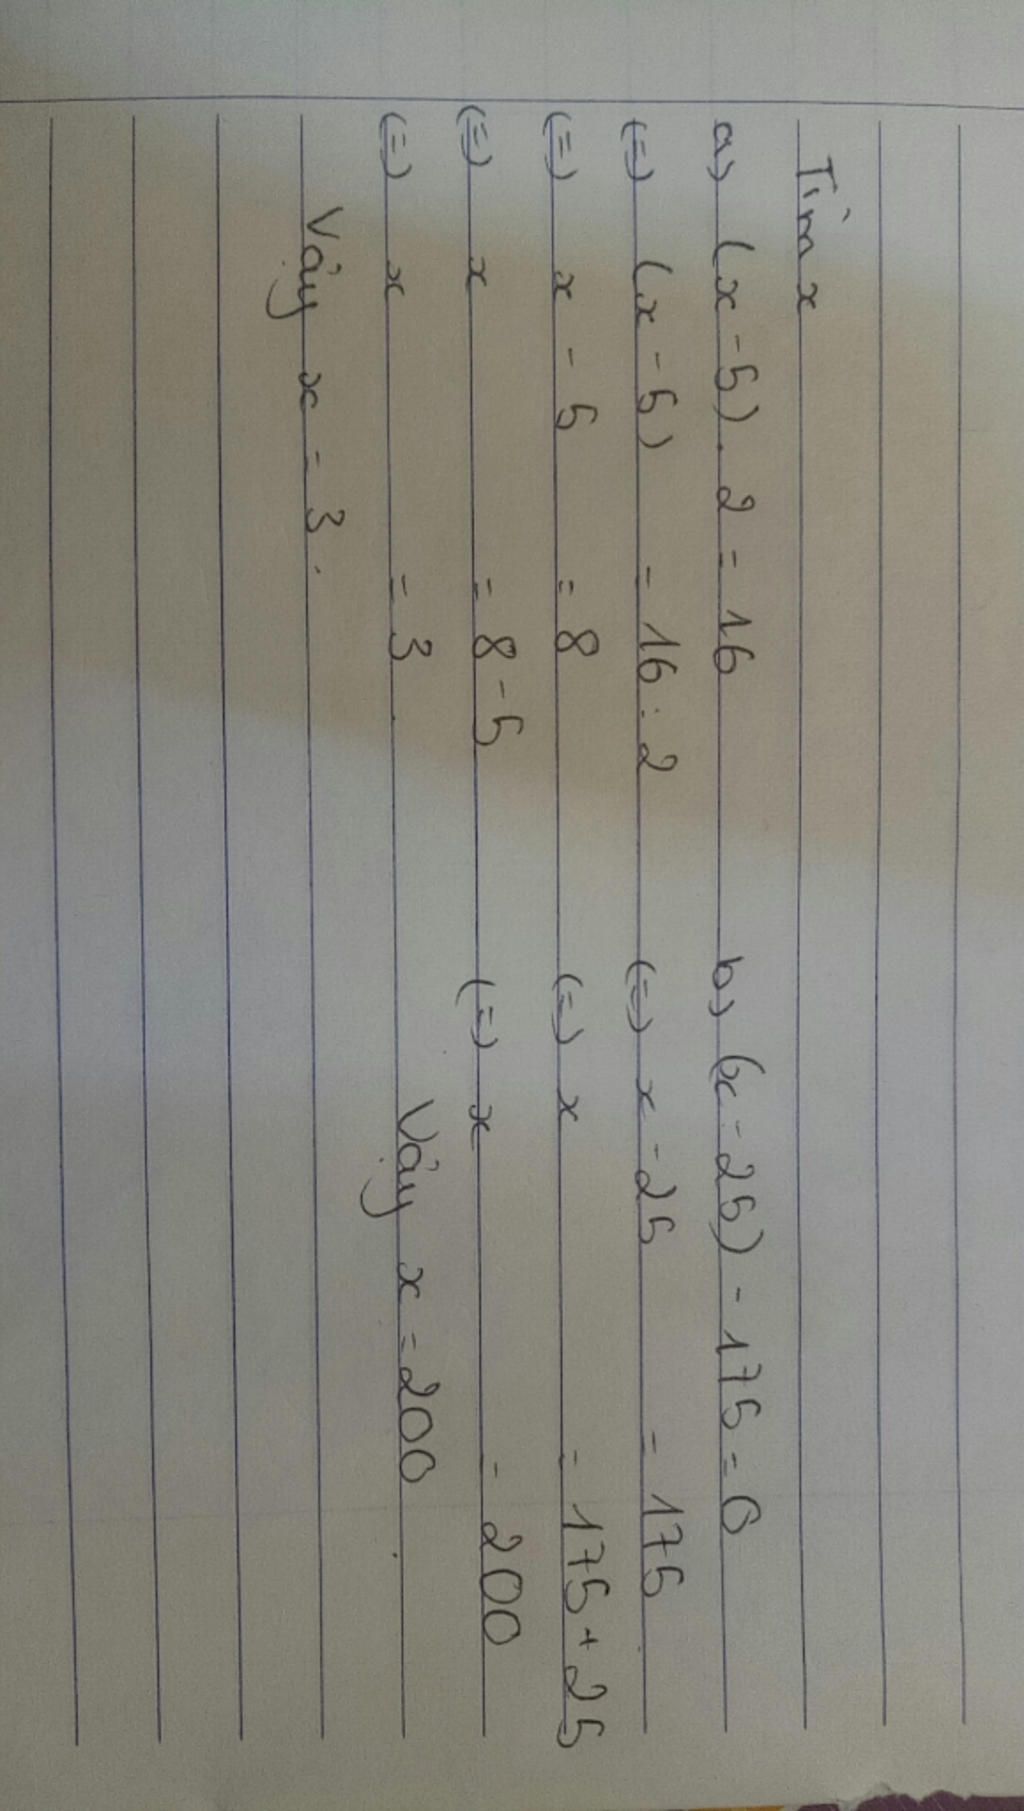 Tìm x
a) (x - 5) . 2 = 16
(=) (x - 5) = 16 : 2
(=) x - 5 = 8
(=) x = 8 - 5
(=) x = 3
Vậy x = 3.
b) (x - 25) - 175 = 0
(=) x - 25 = 175
(=) x = 175 + 25
(=) x = 200
Vậy x = 200